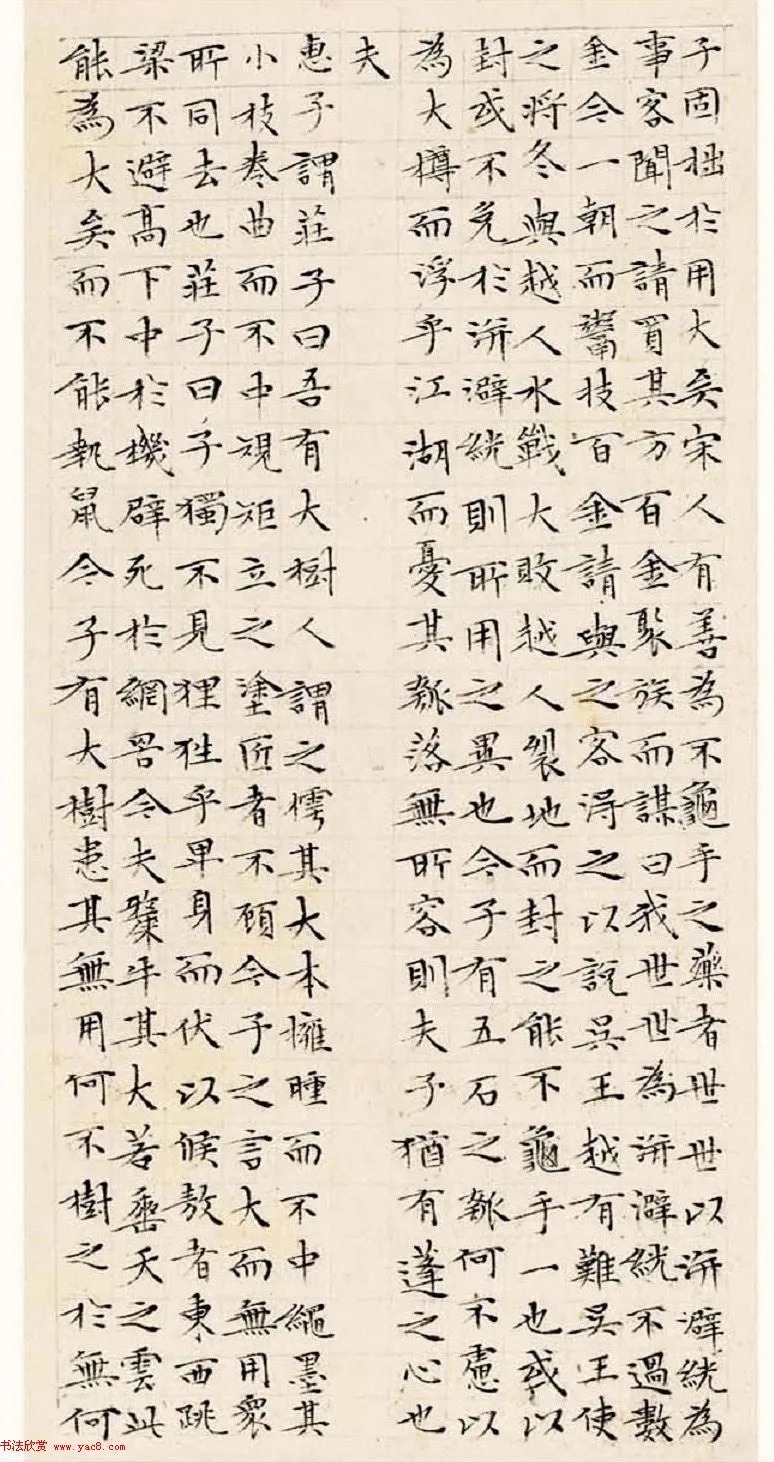 子固拙於用大矣宋人有善為不龜手之藥者世世以洴澼絖為
事客聞之請買其方百金聚族而謀曰我世世為洴澼絖不過數
金今一朝而鬻技百金請與之客淂之以說吳王越有難吳王使
之將冬與越人水戰大敗越人裂地而封之能不龜手一也或以
封或不免於洴澼絖則所用之異也今子有五石之瓠何不慮以
為大樽而浮乎江湖而憂其瓠落無所容則夫子猶有蓬之心也
夫
惠子謂莊子曰吾有大樹人謂之樗其大本擁腫而不中繩墨其
小枝卷曲而不中規矩立之塗匠者不顧今子之言大而無用衆
所同去也莊子曰子獨不見狸狌乎卑身而伏以候敖者東西跳
梁不避高下中於機辟死於網罟今夫斄牛其大若垂天之雲此
能為大矣而不能執鼠今子有大樹患其無用何不樹之於無何
书法欣赏 www.yac8.com